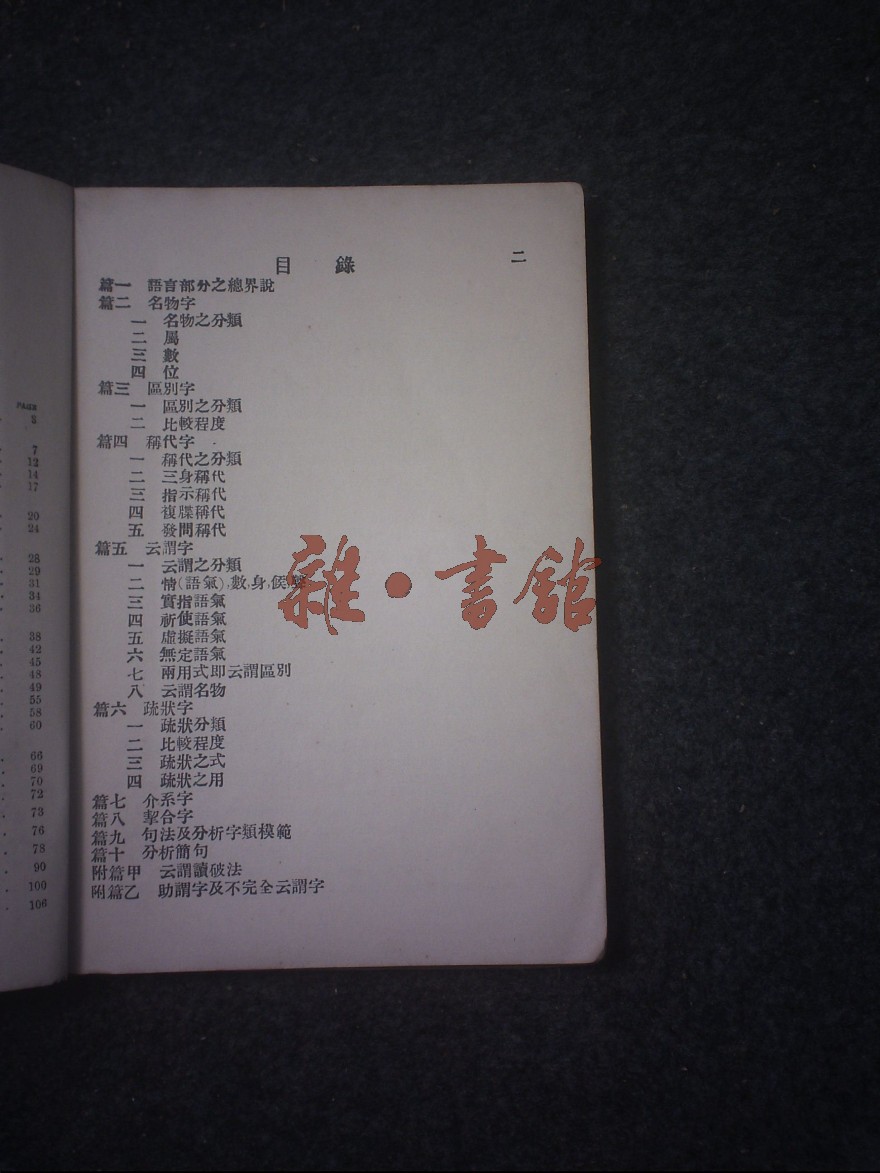 PAGE
3
7
12
14
17
20
24
28
29
31
34
36
38
42
45
48
49
55
58
60
66
69
70
72
73
76
78
90
100
106
二
目錄
篇一 語言部分之總界說
篇二 名物字
一 名物之分類
二 屬
三 數
四 位
篇三 區別字
一 區別之分類
二 比較程度
篇四 稱代字
一 稱代之分類
二 三身稱代
三 指示稱代
四 複牒稱代
五 發問稱代
篇五 云謂字
一 云謂之分類
二 情(語氣),數,身,候,
三 實指語氣
四 祈使語氣
五 虛擬語氣
六 無定語氣
七 兩用式即云謂區別
八 云謂名物
篇六 疏狀字
一 疏狀分類
二 比較程度
三 疏狀之式
四 疏狀之用
篇七 介系字
篇八 挈合字
篇九 句法及分析字類模範
篇十 分析簡句
附篇甲 云謂讀破法
附篇乙 助謂字及不完全云謂字
雜·書館